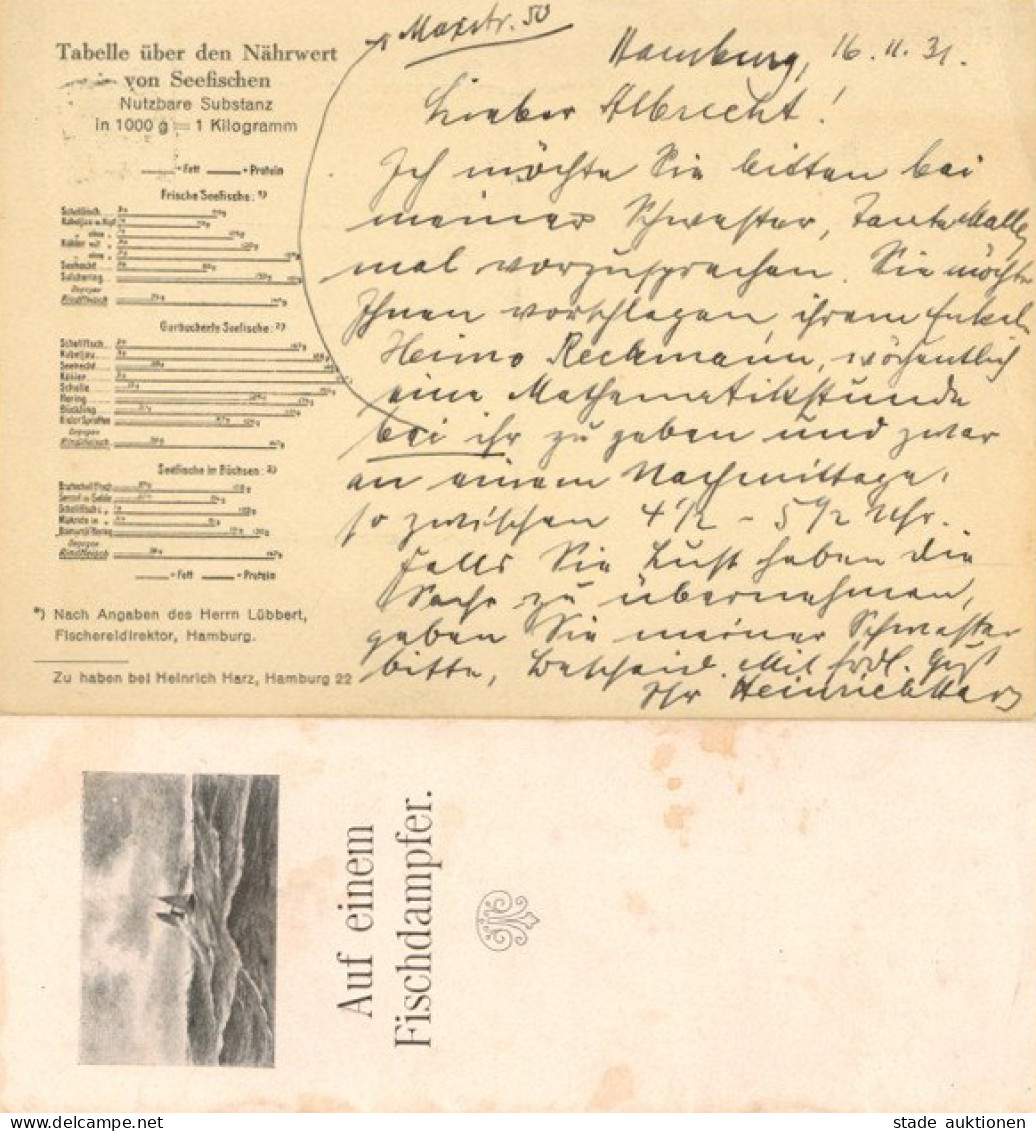 Maxstr. 50
Hamburg, 16.11.31.
Lieber Albrecht!
Ich möchte Sie bitten bei
meiner Schwester, Tante
mal vorzusprechen. Sie möchte
Ihnen vorschlagen, ihrem Enkel
Heimo Reckmann, wöchentlich
eine Mathematikstunde
bei ihr zu geben und zwar
an einem Nachmittage,
so zwischen 4½ - 5½ Uhr.
Falls Sie Lust haben die
Sache zu übernehmen,
geben Sie meiner Schwester
bitte, Bescheid. Mit frdl. Gruß
Ihr Heinrich Harz
Tabelle über den Nährwert
von Seefischen
Nutzbare Substanz
in 1000 g = 1 Kilogramm
= Fett = Protein
Frische Seefische: *)
Schellfisch
Kabeljau m. Kopf
" ohne "
Köhler mit "
" ohne "
Seehecht
Salzhering
Dagegen
Rindfleisch
Geräucherte Seefische: *)
Schellfisch
Kabeljau
Seehecht
Köhler
Scholle
Hering
Bückling
Kieler Sprotten
Dagegen
Rindfleisch
Seefische in Büchsen: *)
Bratschellfisch
Makrele in "
Bismarckhering
Dagegen
Rindfleisch
= Fett = Protein
*) Nach Angaben des Herrn Lübbert,
Fischereidirektor, Hamburg.
Zu haben bei Heinrich Harz, Hamburg 22
Auf einem
Fischdampfer.
© www.delcampe.net
stade auktionen